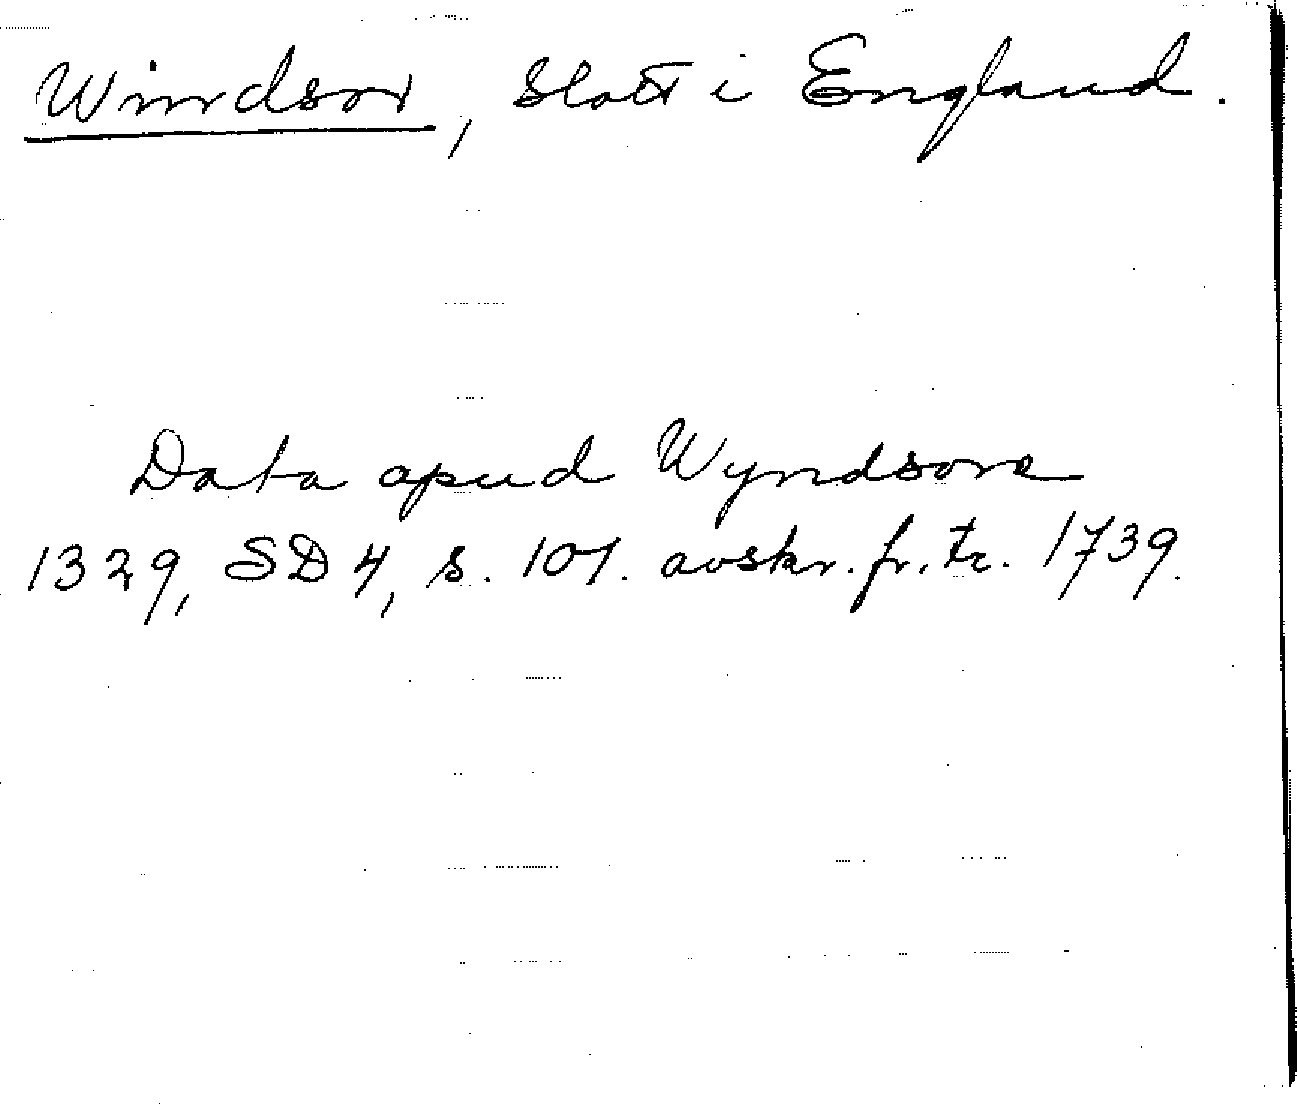 Windsor, Slott i England.
Data apud Wyndsore
1329, SD 4, s. 107. avskr. fr. tr. 1739.